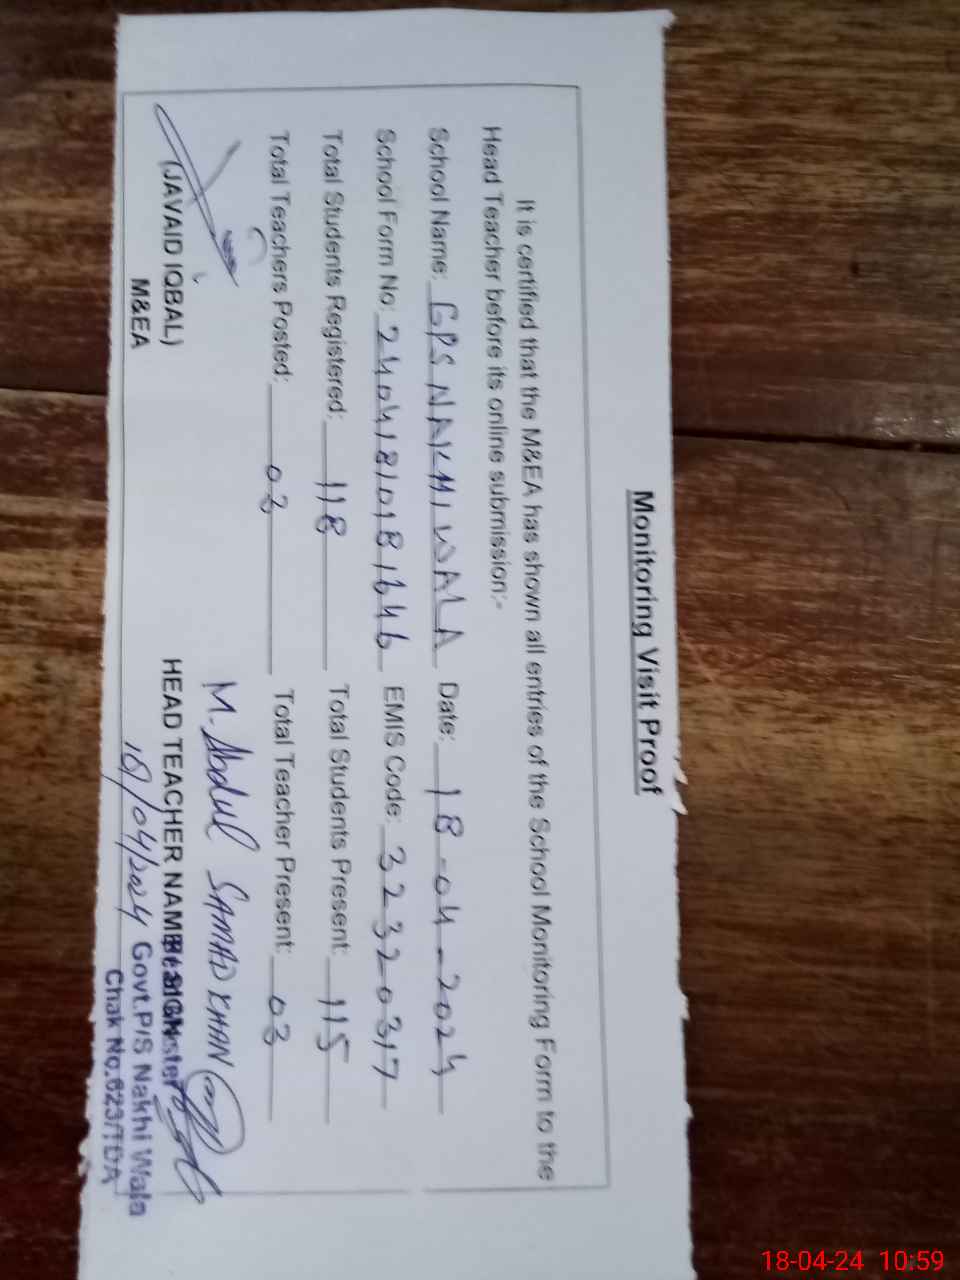 Monitoring Visit Proof
It is certified that the M&EA has shown all entries of the School Monitoring Form to the
Head Teacher before its online submission:-
School Name: GPS NAKHI WALA Date: 18-04-2024
School Form No: 24041810181646 EMIS Code: 32320317
Total Students Registered: 118 Total Students Present: 115
Total Teachers Posted: 03 Total Teacher Present: 03
M. Abdul SAMAD KHAN
(JAVAID IQBAL) HEAD TEACHER NAME & SIGN
M&EA
18/04/2024 Govt.P/S Nakhi Wala
Chak No.623/TDA
18-04-24 10:59